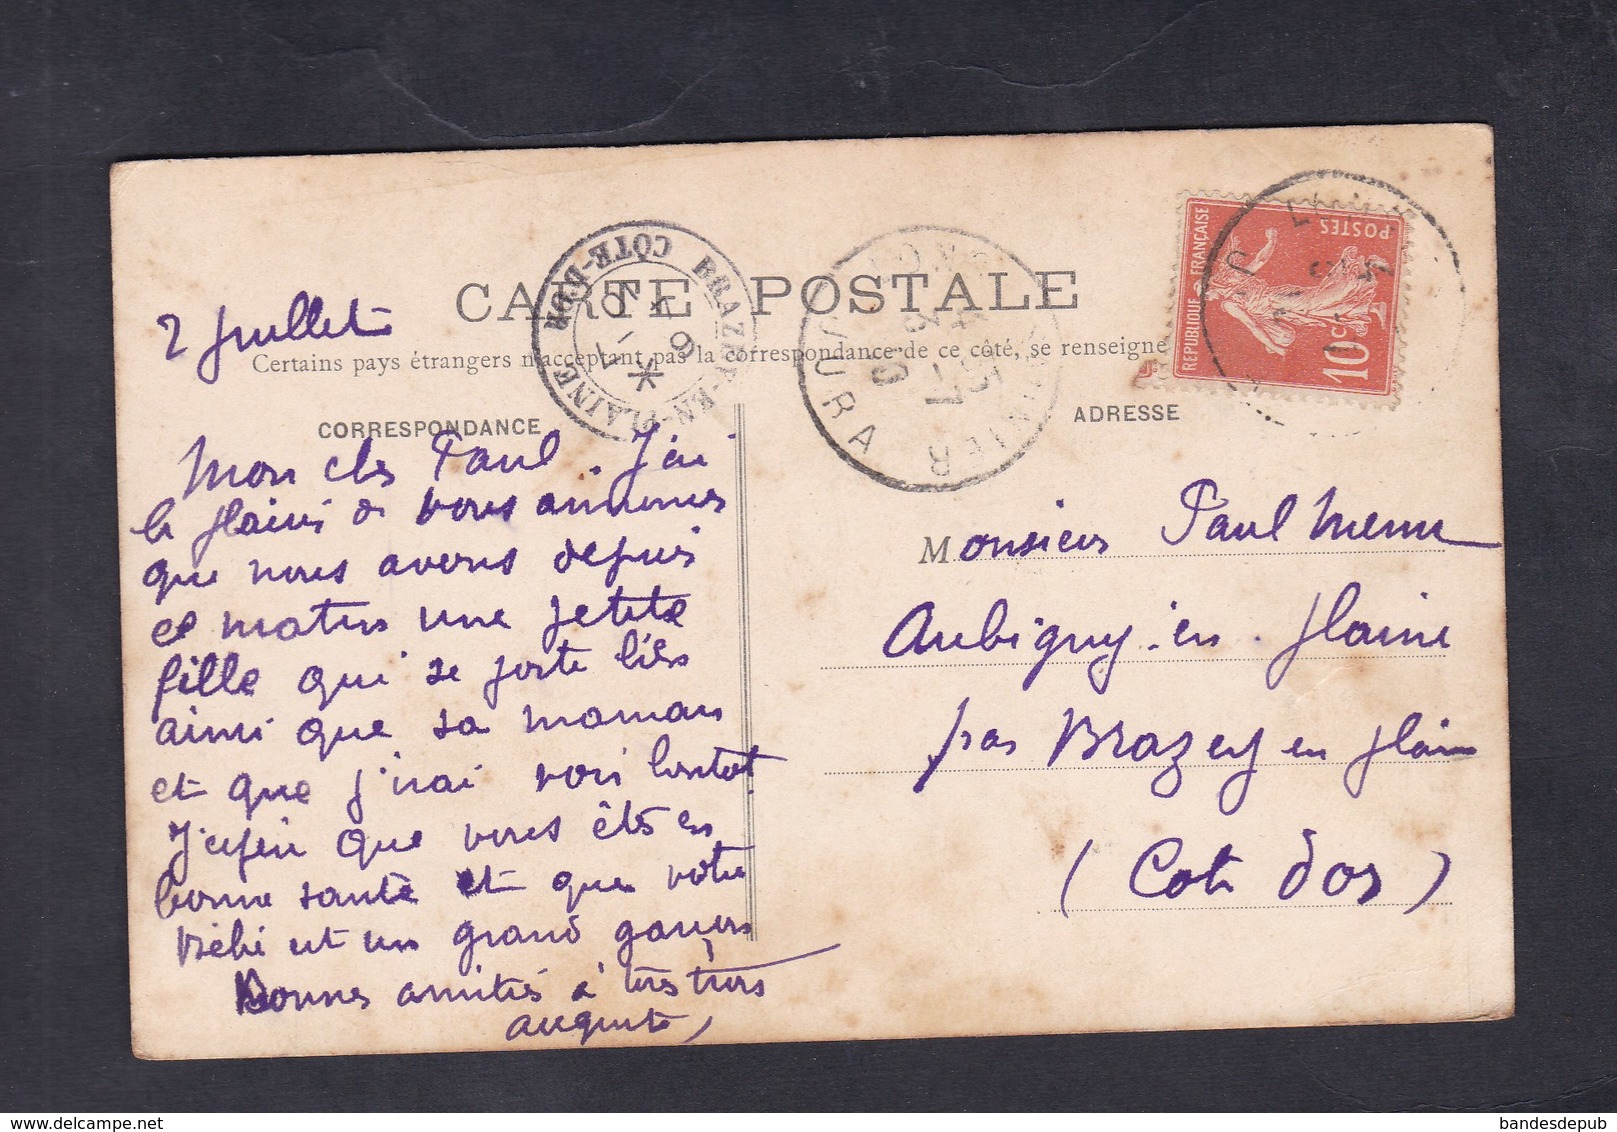 CARTE POSTALE
Certains pays étrangers n'acceptant pas la correspondance de ce côté, se renseigne
CORRESPONDANCE
ADRESSE
2 juillet
Mon cher Paul. J'ai
le plaisir de vous annoncer
que nous avons depuis
ce matin une petite
fille qui se porte bien
ainsi que sa maman
et que j'irai voir bientot.
J'espère que vous êtes en
bonne santé et que votre
Bébé est un grand garçon
Bonnes amitiés à tous trois
auguste
Monsieur Paul
Aubigny-en-plaine
par Brazey en plaine
(Cote d'or)
BRAZEY-EN-PLAINE
COTE-D'OR
JURA
REPUBLIQUE FRANÇAISE
POSTES
10c
delcampe.net
bandesdepub